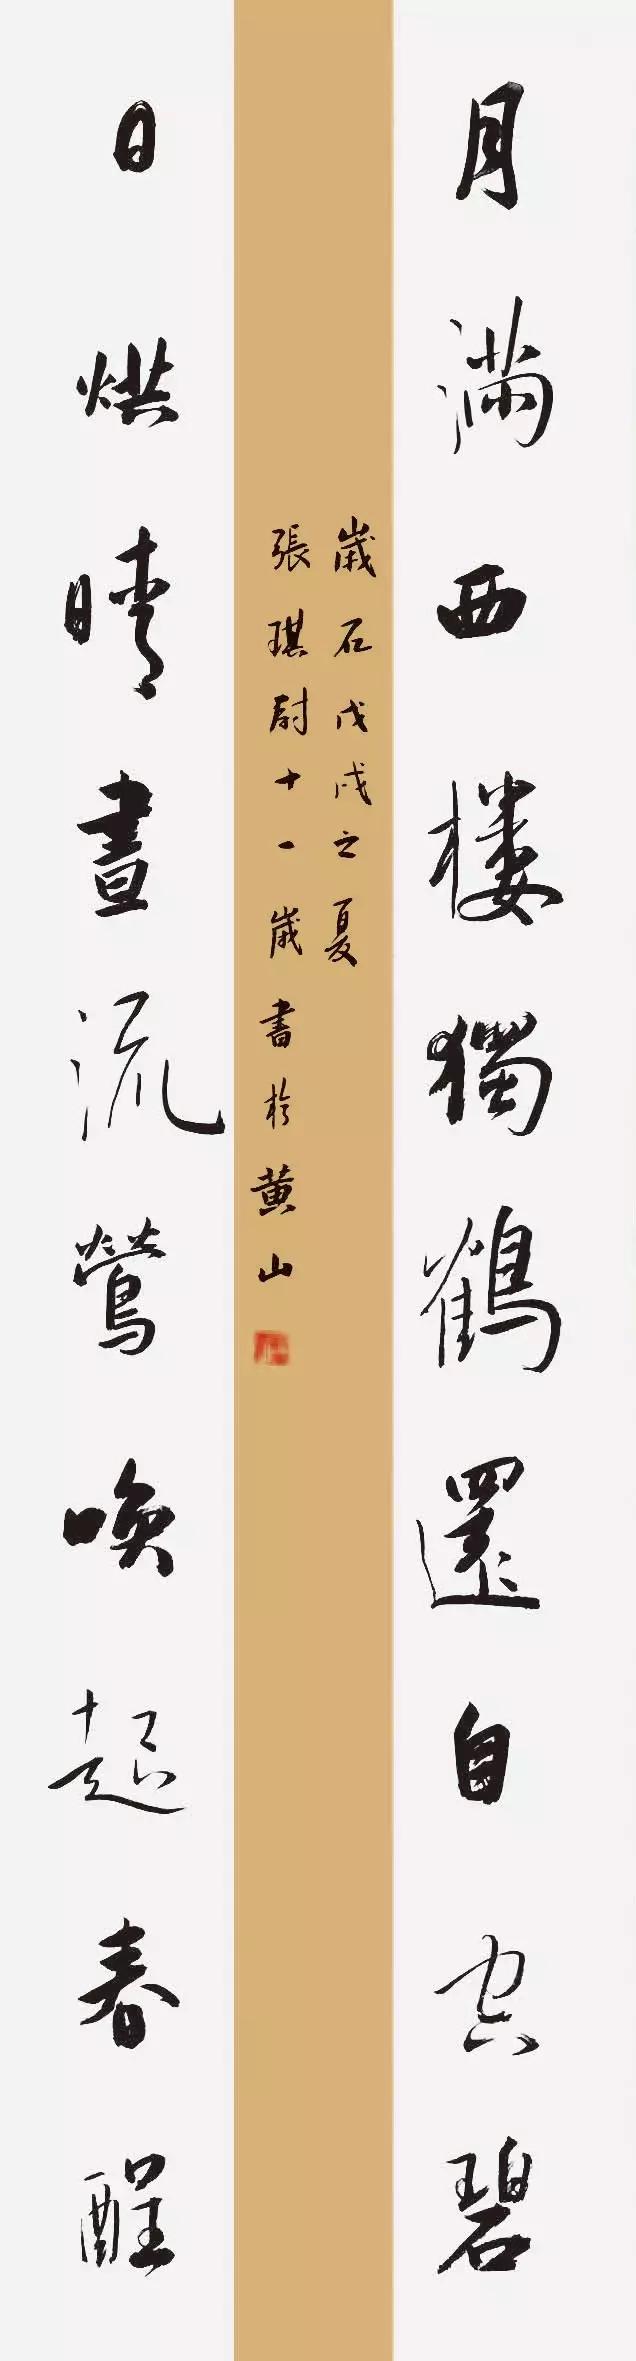 月滿西楼獨鶴還自空碧
歲在戊戌之夏
張琪尉十一歲書於黄山
日烘晴晝流鶯喚起春酲